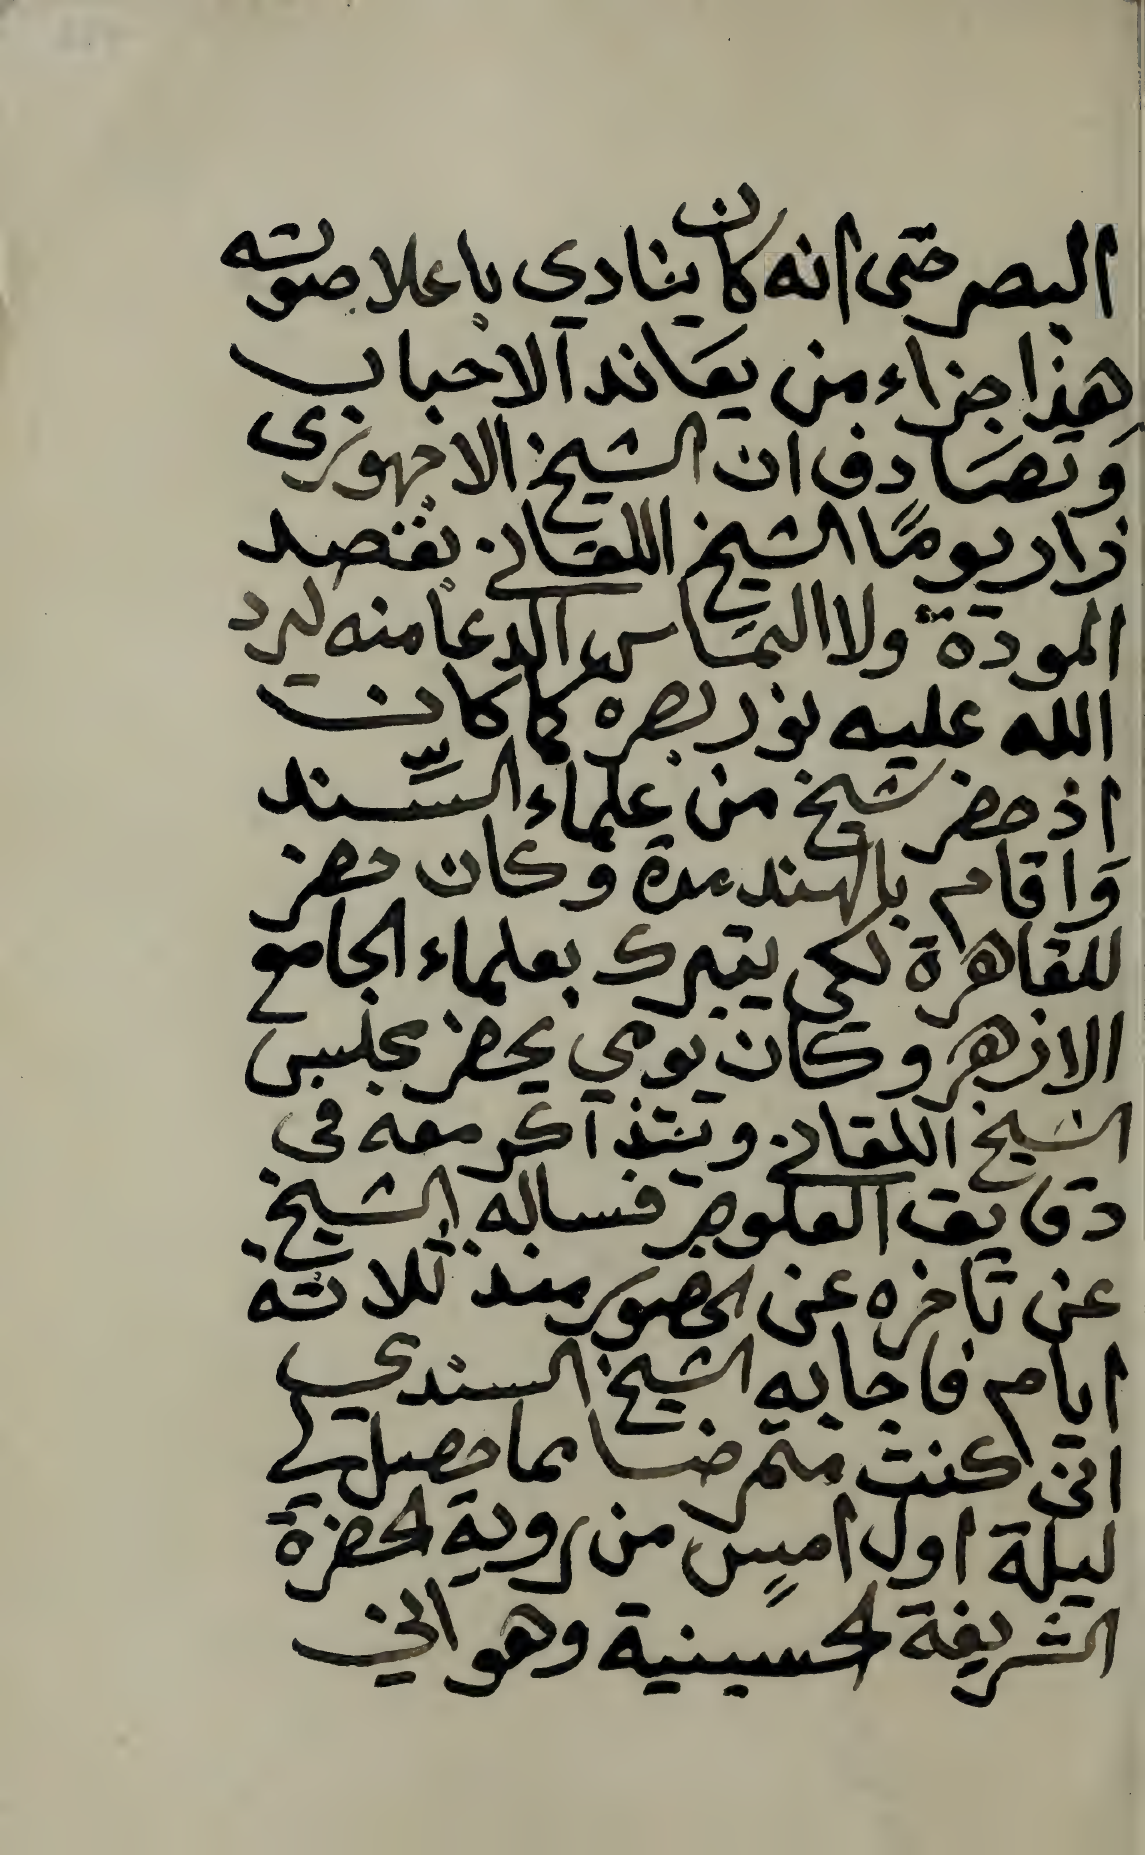 البصر حتى انه كان ينادي باعلا صوته
هذا جزاء من يعاند الاحباب
وتصادف ان الشيخ الاجهورى
زار يومًا الشيخ اللقاني بقصد
المودة ولا التماس الدعا منه ليرد
الله عليه نور بصره كما كان
اذ حضر شيخ من علماء السّند
واقام بالهند مدة وكان حضر
للقاهرة لكي يتبرك بعلماء الجامع
الازهر وكان يومي يحضر مجلس
الشيخ اللقاني ويتذاكر معه في
دقايق العلوم فساله الشيخ
عن تاخره عن الحضور منذ ثلاثة
ايام فاجابه الشيخ السندي
انى كنت متمرضا مما حصل لي
ليلة اول امسٍ من روية الحضرة
الشريفة الحسينية وهو اني